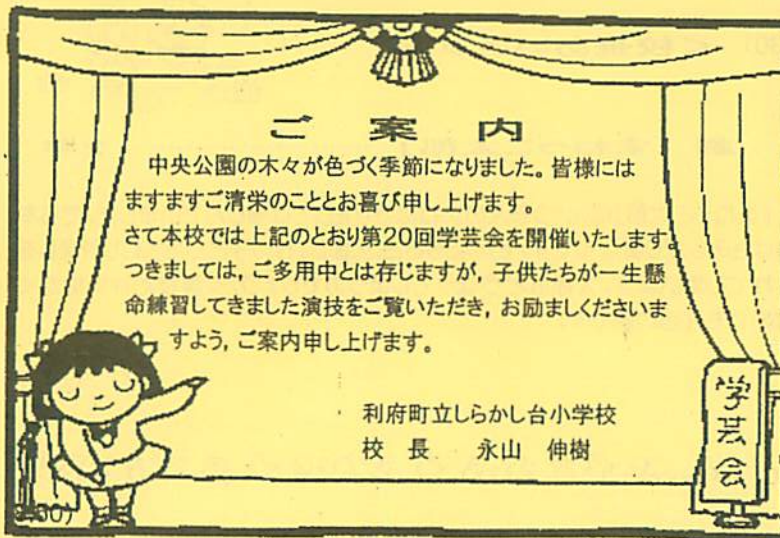 ご案内
中央公園の木々が色づく季節になりました。皆様には
ますますご清栄のこととお喜び申し上げます。
さて本校では上記のとおり第20回学芸会を開催いたします。
つきましては，ご多用中とは存じますが，子供たちが一生懸
命練習してきました演技をご覧いただき，お励ましくださいま
すよう，ご案内申し上げます。
利府町立しらかし台小学校
校長　永山　伸樹
学芸会
:00)